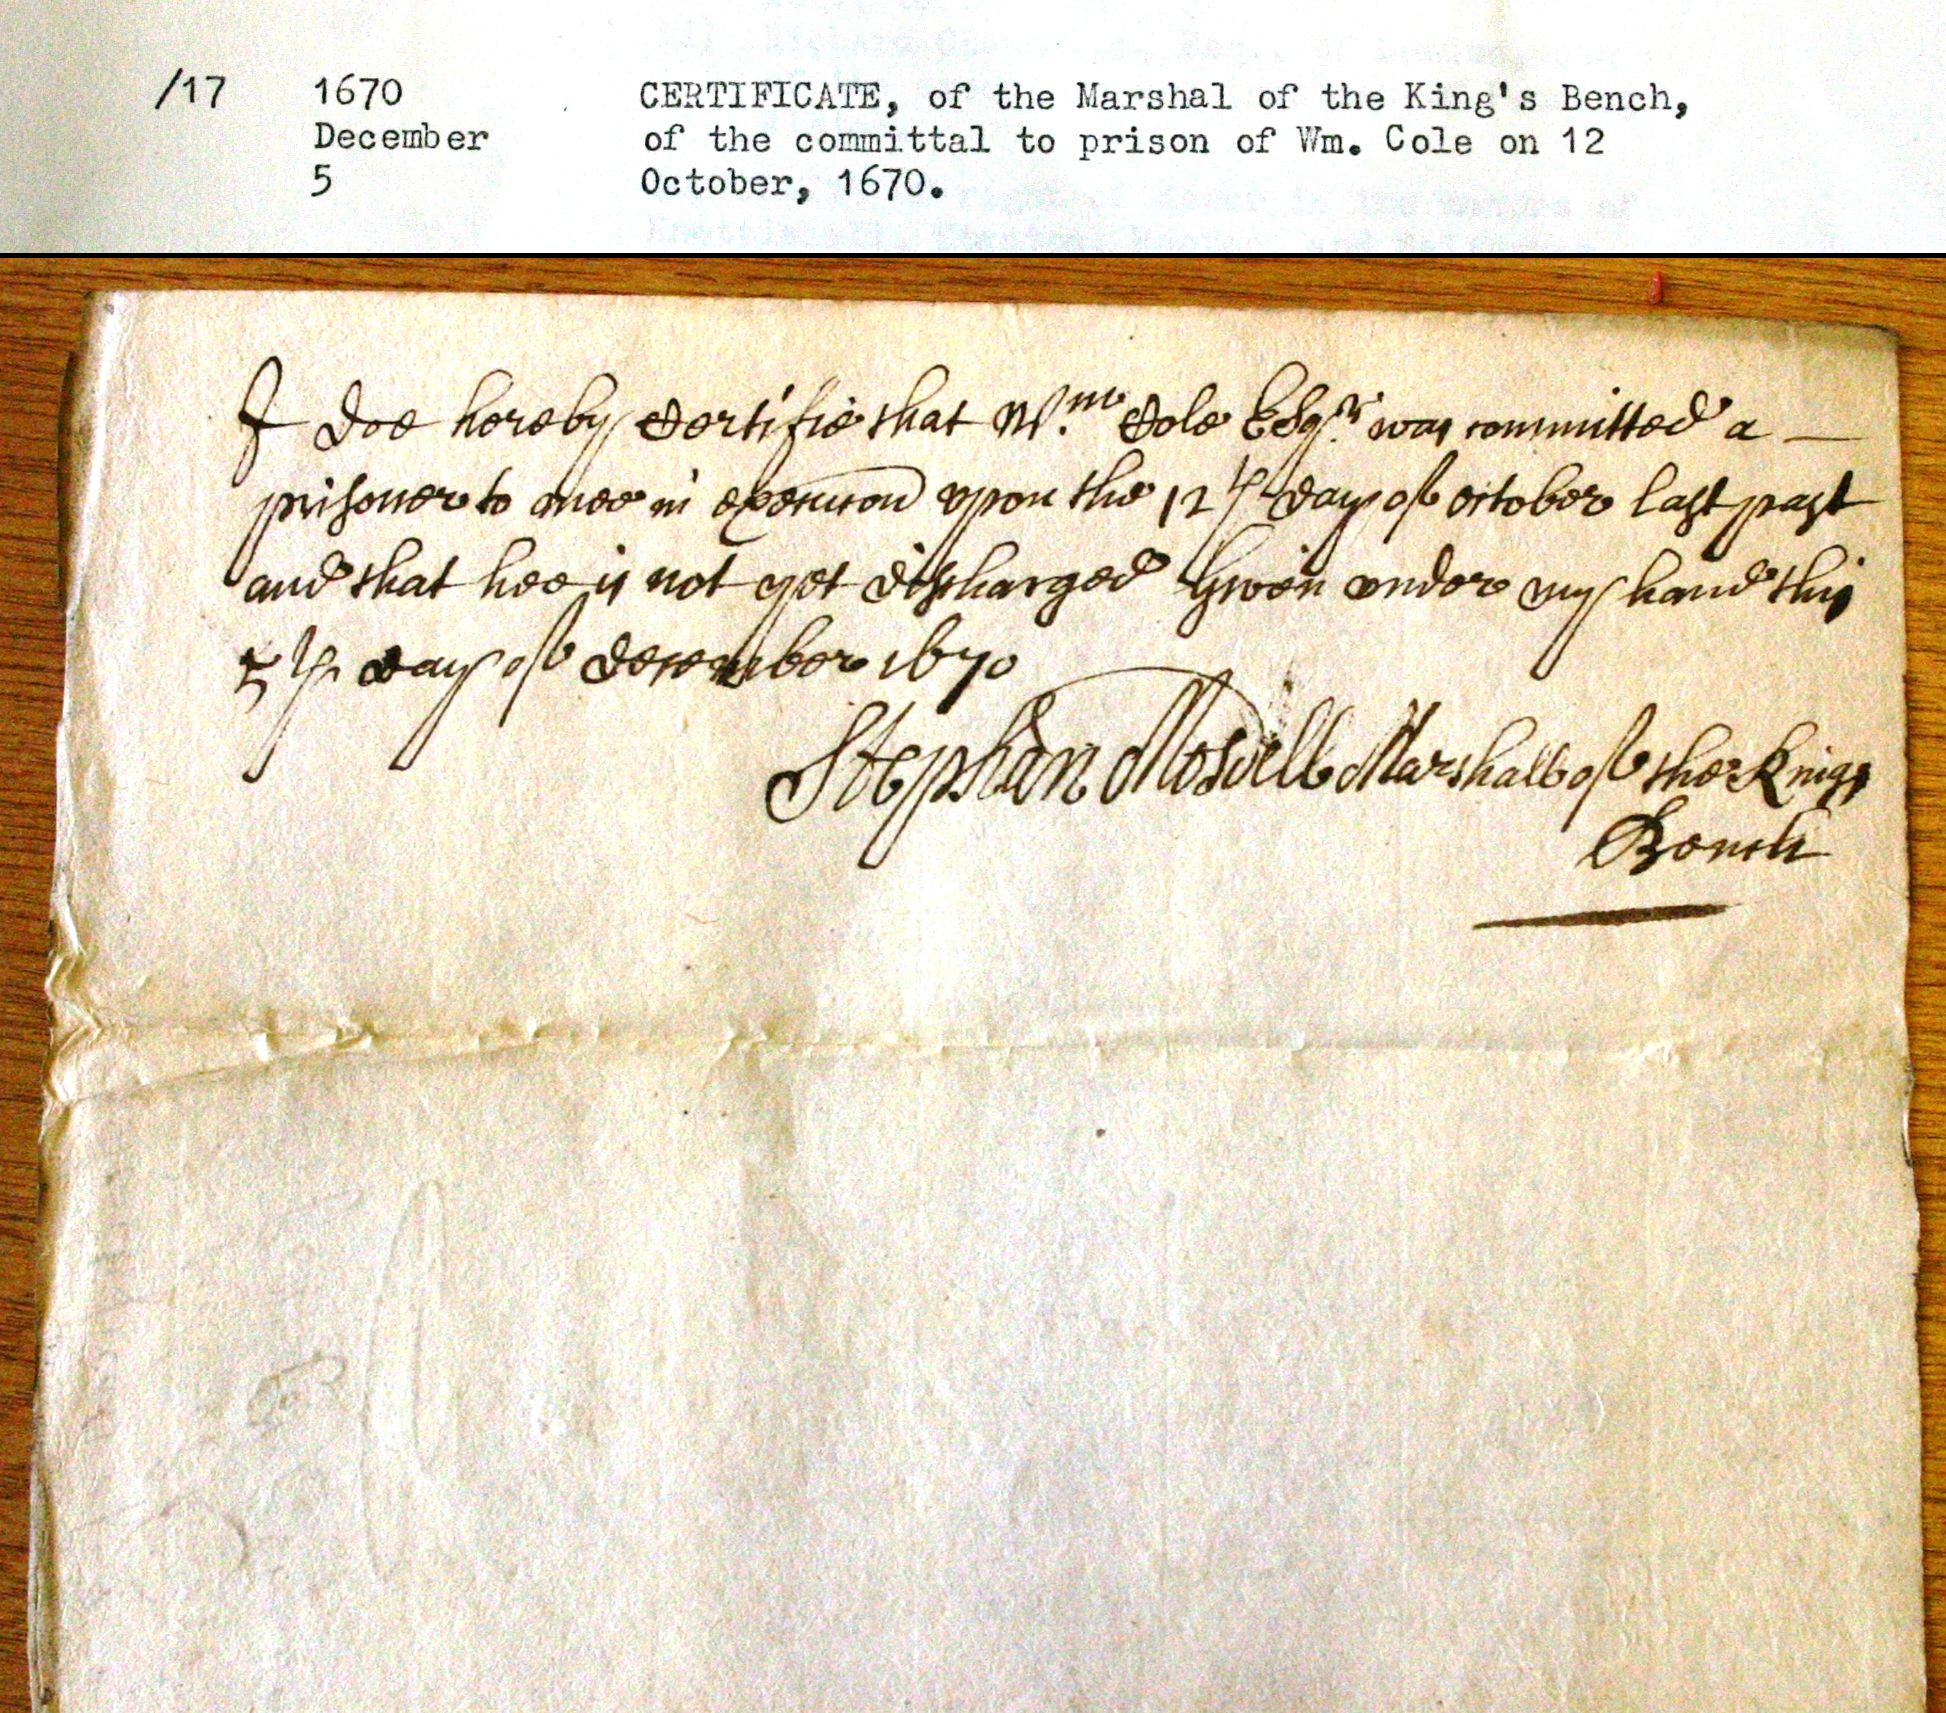 /17 1670 CERTIFICATE, of the Marshal of the King's Bench,
December of the committal to prison of Wm. Cole on 12
5 October, 1670.
I doe hereby Certifie that Wm. Cole Esqr. was committed a —
prisoner to mee in execucon upon the 12th day of October last past
and that hee is not yet discharged Given under my hand this
5th day of December 1670
Stephen Mosdell Marshall of the Kings
Bench